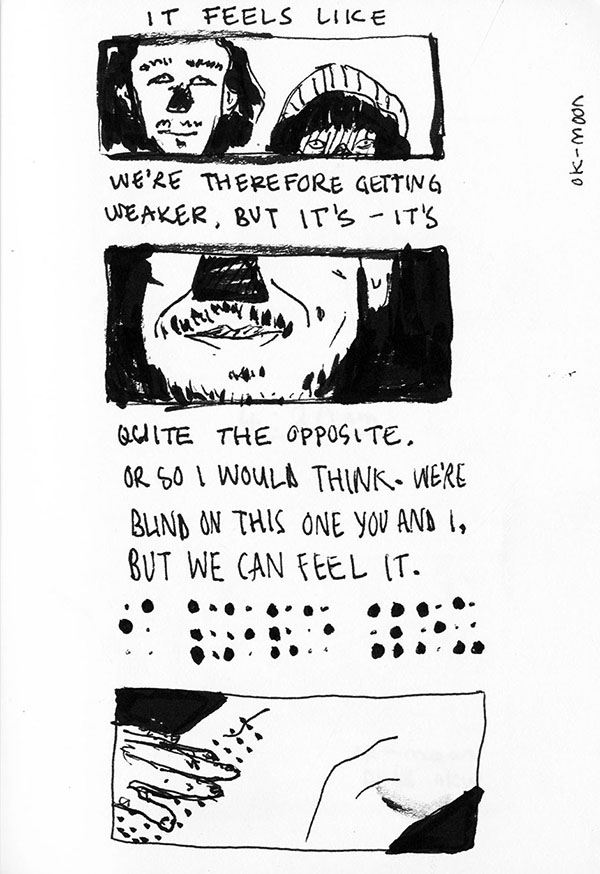 IT FEELS LIKE
WE'RE THEREFORE GETTING
WEAKER, BUT IT'S – IT'S
QUITE THE OPPOSITE.
OR SO I WOULD THINK. WE'RE
BLIND ON THIS ONE YOU AND I,
BUT WE CAN FEEL IT.
⠊ ⠇⠕⠧⠑ ⠽⠕⠥
ok-moon